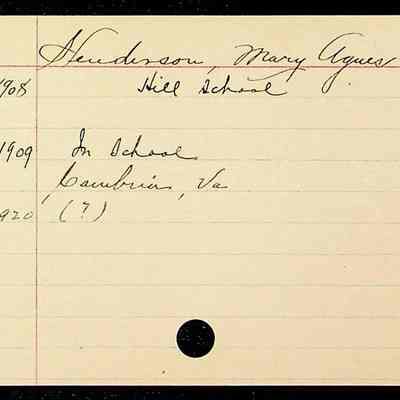 Henderson, Mary Agnes
1908 Hill School
1909 In School
Cambria, Va
1920 (?)